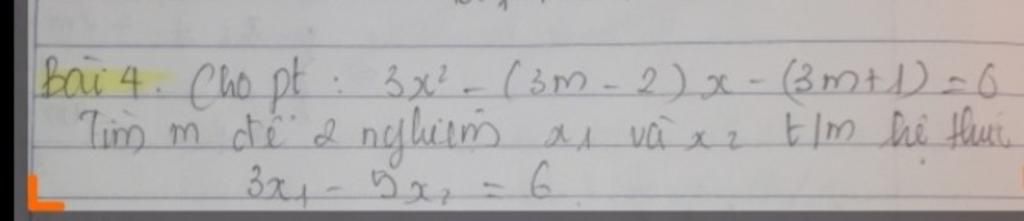 Bài 4. Cho pt : 3x² - (3m - 2)x - (3m+1) = 0
Tìm m để 2 nghiệm x₁ và x₂ t/m hệ thức
3x₁ - 5x₂ = 6